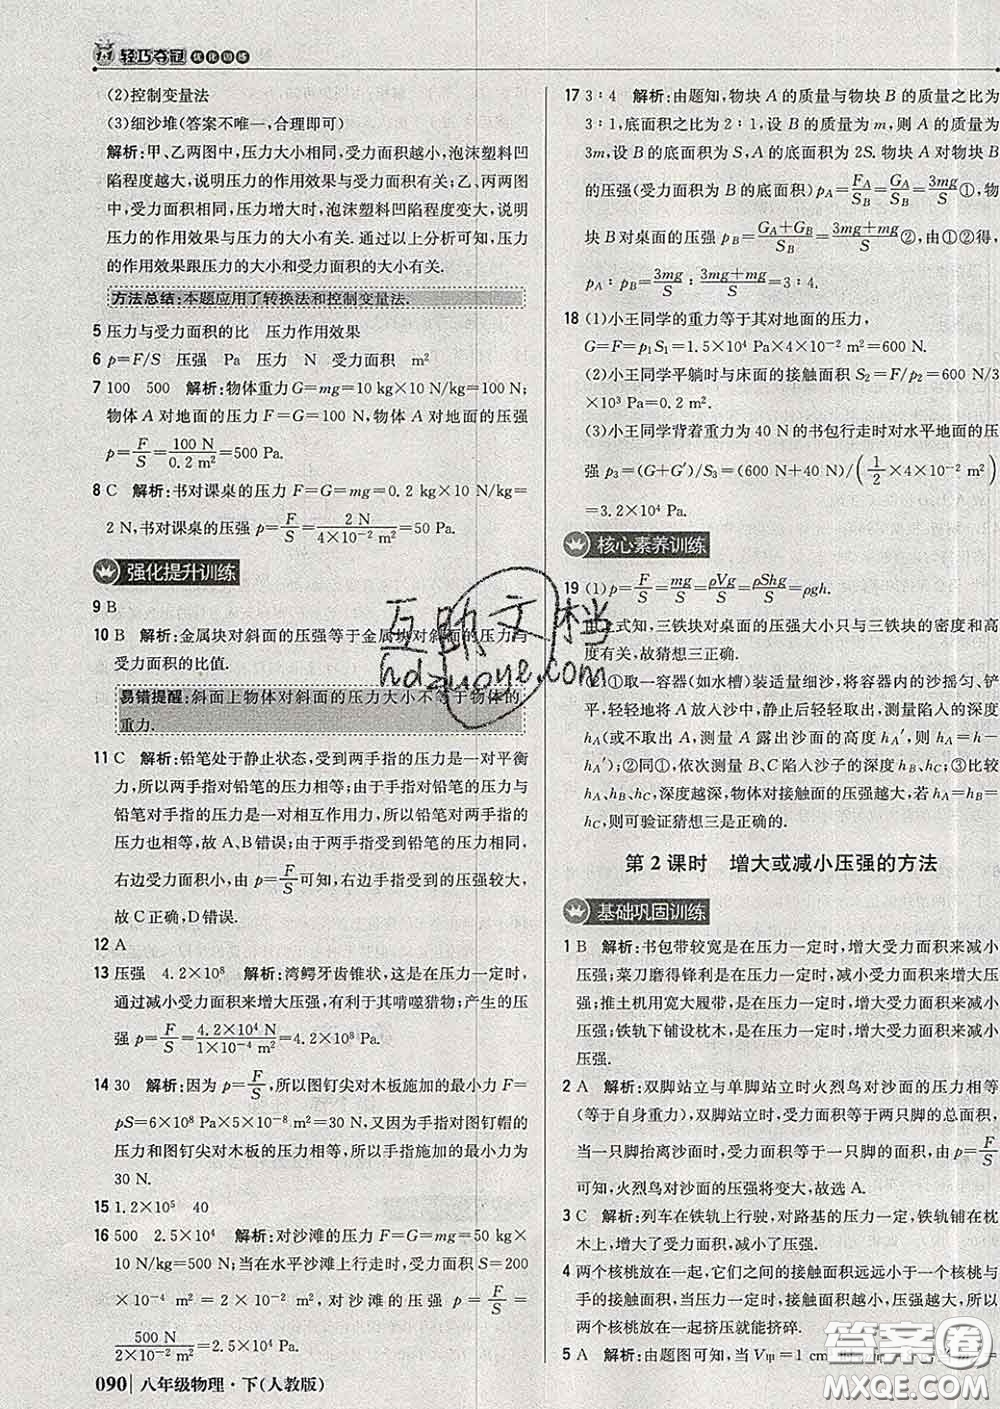 1+1 轻巧夺冠 优化训练
(2)控制变量法
(3)细沙堆(答案不唯一,合理即可)
解析:甲、乙两图中,压力大小相同,受力面积越小,泡沫塑料凹
陷程度越大,说明压力的作用效果与受力面积有关;乙、丙两图
中,受力面积相同,压力增大时,泡沫塑料凹陷程度变大,说明
压力的作用效果与压力的大小有关.通过以上分析可知,压力
的作用效果跟压力的大小和受力面积的大小有关.
方法总结:本题应用了转换法和控制变量法.
5 压力与受力面积的比 压力作用效果
6 p=F/S 压强 Pa 压力 N 受力面积 m²
7 100 500 解析:物体重力G=mg=10 kg×10 N/kg=100 N;
物体 A 对地面的压力 F=G=100 N,物体 A 对地面的压强
p=F/S=100 N/0.2 m²=500 Pa.
8 C 解析:书对课桌的压力 F=G=mg=0.2 kg×10 N/kg=
2 N,书对课桌的压强 p=F/S=2 N/4×10⁻² m²=50 Pa.
强化提升训练
9 B
10 B 解析:金属块对斜面的压强等于金属块对斜面的压力与
受力面积的比值.
易错提醒:斜面上物体对斜面的压力大小不等于物体的
重力.
11 C 解析:铅笔处于静止状态,受到两手指的压力是一对平衡
力,所以两手指对铅笔的压力相等;由于手指对铅笔的压力与
铅笔对手指的压力是一对相互作用力,所以铅笔对两手指的
压力也相等,故 A、B 错误;由于两手指受到的压力相同,
右边受力面积小,由 p=F/S 可知,右边手指受到的压强大,
故 C 正确,D 错误.
12 A
13 压强 4.2×10⁸ 解析:湾鳄牙齿锥状,这是在压力一定时,
通过减小受力面积来增大压强,有利于其啃噬猎物;产生的压
强 p=F/S=4.2×10⁴ N/1×10⁻⁴ m²=4.2×10⁸ Pa.
14 30 解析:因为 p=F/S,所以图钉尖对木板施加的最小力 F=
pS=6×10⁸ Pa×5×10⁻⁸ m²=30 N,又因为手指对图钉帽的
压力和图钉尖对木板的压力相等,所以手指的压力最小为
30 N.
15 1.2×10⁵ 40
16 500 2.5×10⁴ 解析:对沙滩的压力 F=G=mg=50 kg
×10 N/kg=500 N;当在水平沙滩上行走时,受力面积 S=200
×10⁻⁴ m²=2×10⁻² m²,对沙滩的压强 p=F/S=
500 N/2×10⁻² m²=2.5×10⁴ Pa.
090 八年级物理·下(人教版)
17 3∶4 解析:由题知,物块 A 的质量与物块 B 的质量之比为
3∶1,底面积之比为 2∶1,设 B 的质量为 m,则 A 的质量为
3m,设 B 的底面积为 S,A 的底面积为 2S.物块 A 对物块 B
的压强(受力面积为 B 的底面积)pA=FA/SB=GA/SB=3mg/S①,物
块 B 对桌面的压强 pB=GA+GB/SB=3mg+mg/S②,由①②得,
pA∶pB=3mg/S∶3mg+mg/S=3∶4.
18 (1)小王同学的重力等于其对地面的压力,
G=F=p₁S₁=1.5×10⁴ Pa×4×10⁻² m²=600 N.
(2)小王同学平躺时与床面的接触面积 S₂=F/p₂=600 N/3
×10³ Pa=0.2 m².
(3)小王同学背着重力为 40 N 的书包行走时对水平地面的压
强 p₃=(G+G′)/S₃=(600 N+40 N)/(1/2×4×10⁻² m²)
=3.2×10⁴ Pa.
核心素养训练
19 (1)p=F/S=mg/S=ρVg/S=ρShg/S=ρgh.
式知,三铁块对桌面的压强大小只与三铁块的密度和高
度有关,故猜想三正确.
(2)①取一容器(如水槽)装适量细沙,将容器内的沙摇匀、铲
平,轻轻地将 A 放入沙中,静止后轻轻取出,测量陷入的深度
hA(或不取出 A,测量 A 露出沙面的高度 hA′,则 hA=h-
hA′);②同①,依次测量 B、C 陷入沙子的深度 hB、hC;③比较
hA、hB、hC,深度越深,物体对接触面的压强越大,若 hA=hB=
hC,则可验证猜想三是正确的.
第 2 课时 增大或减小压强的方法
基础巩固训练
1 B 解析:书包带较宽是在压力一定时,增大受力面积来减小
压强;菜刀磨得锋利是在压力一定时,减小受力面积来增大压
强;推土机用宽大履带,是在压力一定时,增大受力面积来减小
压强;铁轨下铺设枕木,是在压力一定时,增大受力面积来减小
压强.
2 A 解析:双脚站立与单脚站立时火烈鸟对沙面的压力相等
(等于自身重力),双脚站立时,受力面积等于两只脚的总面积,
当一只脚抬离沙面时,受力面积等于一只脚的面积,由 p=F/S
可知,火烈鸟对沙面的压强将变大,故选 A.
3 C 解析:列车在铁轨上行驶,对路基的压力没变,铁轨铺在枕
木上,增大了受力面积,减小了压强.
4 两个核桃放在一起,它们之间的接触面积远远小于一个核桃与
手的接触面积,当压力一定时,受力面积越小,压强越大,所以
两个核桃放在一起挤压就能挤碎.
5 A 解析:由题图可知,当 V
互助文档
hdzuoye.com
答案圈
MXQE.COM